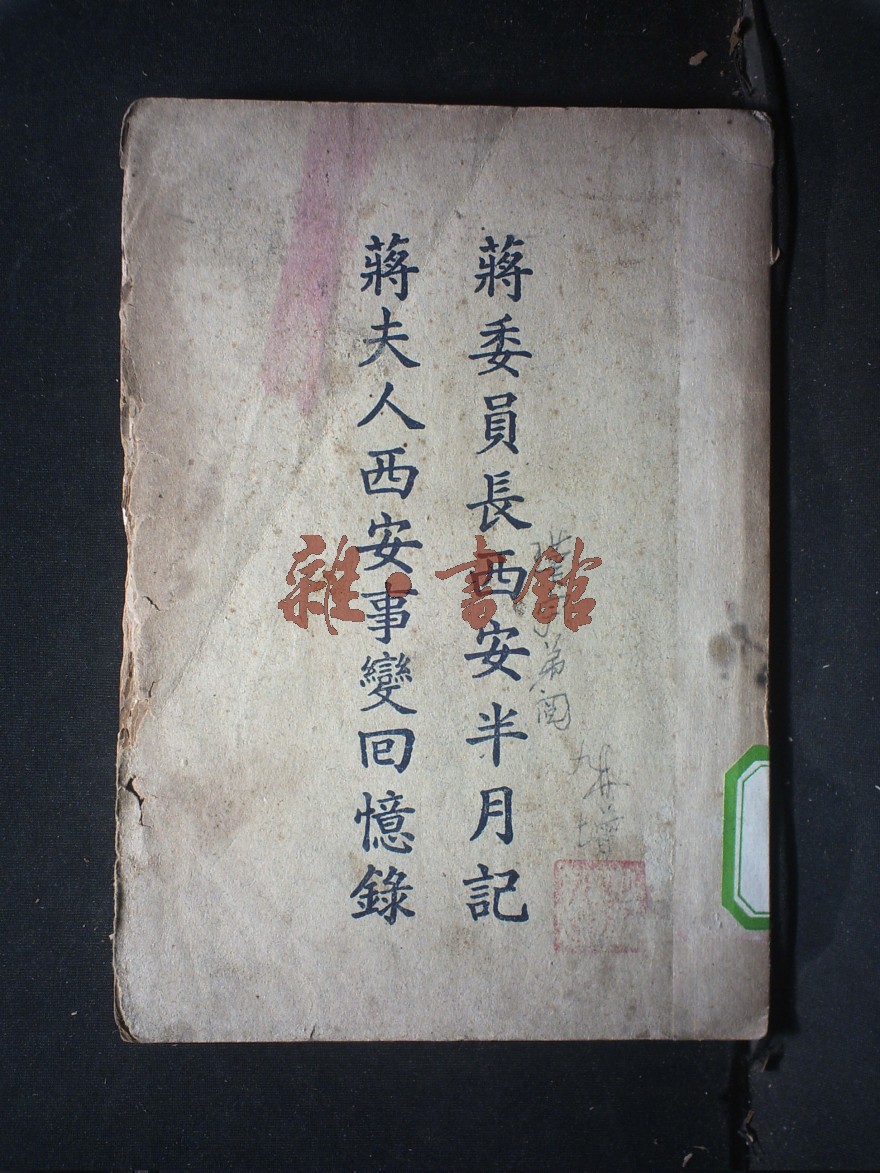 蔣委員長西安半月記
蔣夫人西安事變回憶錄
雜·書館